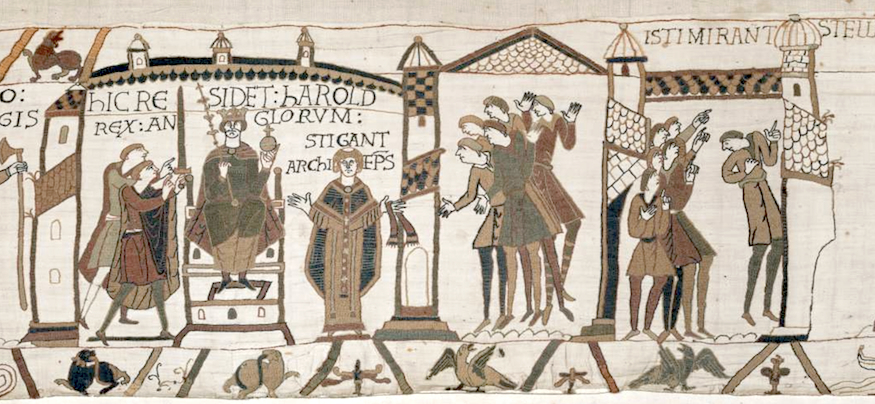 O:
GIS
hIC RE SIDET: hAROLD
REX: AN GLORVM:
STIGANT
ARChI EPS
ISTI MIRANT STELL